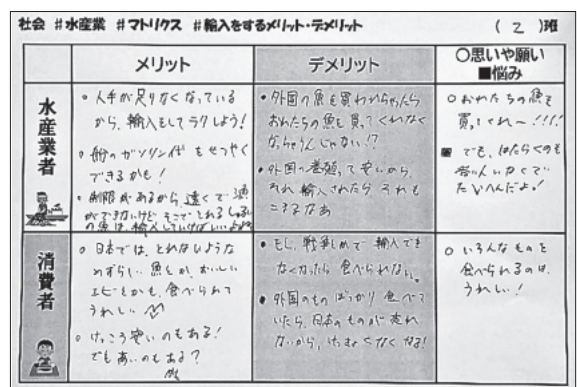 社会 #水産業 #マトリクス #輸入をするメリット・デメリット (2)班
メリット
デメリット
○思いや願い
■悩み
水産業者
・人手が足りなくなっている
から、輸入をしてラクしよう!
・船のガソリン代をせつやく
できるかも!
・制限があるから、遠くで漁
ができないけど そこでとれる
の魚は、輸入していけばいい
・外国の魚を買われちゃったら
おれたちの魚を買ってくれなく
なっちゃうんじゃない!?
・外国の養殖って安いから、
それ輸入されたら それも
こまるなあ
○おれたちの魚を
買ってくれ〜!!!!
■でも、はたらくのも
若い人いなくて
たいへんだよ!
消費者
○日本では、とれないような
めずらしい魚とか、おいしい
エビとかも、食べられて
うれしい
○けっこう安いのもある!
でも高いのもある?
・もし、戦争とかで輸入でき
なくなったら 食べられない。
・外国のものばっかり食べて
いたら、日本のものが売れ
ないから、けっきょくなくなる!
○いろんなものを
食べられるのは、
うれしい!